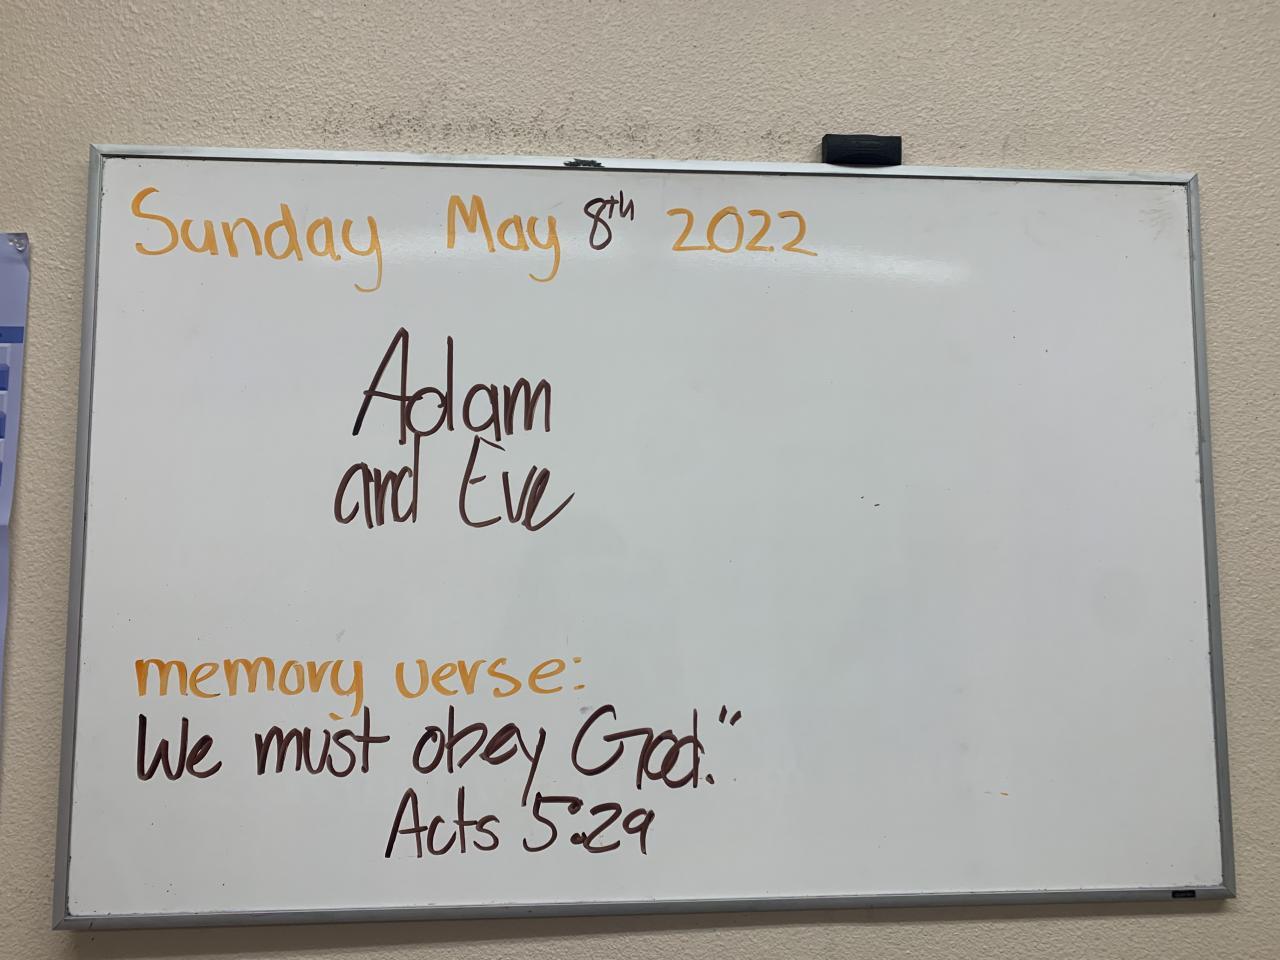 Sunday May 8th 2022
Adam
and Eve
memory verse:
We must obey God."
Acts 5:29